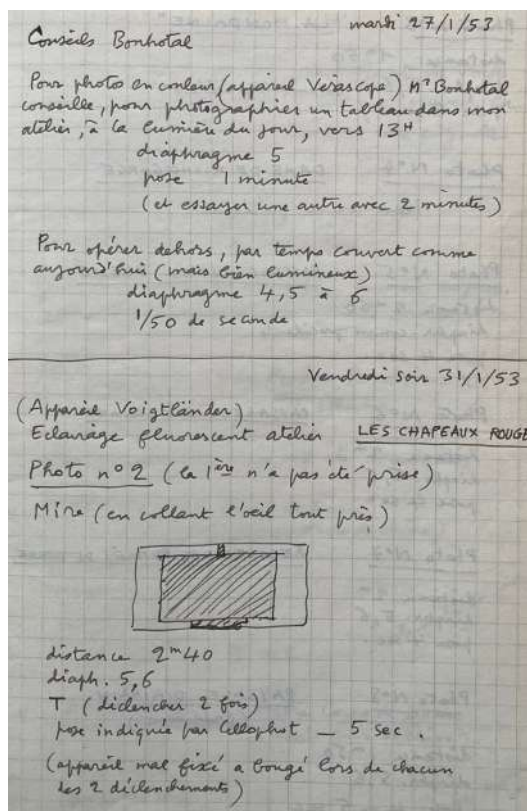 mardi 27/1/53
Conseils Bonhotal
Pour photos en couleur (appareil Vérascope) Mr Bonhotal
conseille, pour photographier un tableau dans mon
atelier, à la lumière du jour, vers 13H
diaphragme 5
pose 1 minute
(et essayer une autre avec 2 minutes)
Pour opérer dehors, par temps couvert comme
aujourd'hui (mais bien lumineux)
diaphragme 4,5 à 6
1/50 de seconde
Vendredi soir 31/1/53
(Appareil Voigtländer)
Eclairage fluorescent atelier LES CHAPEAUX ROUGE
Photo n° 2 (la 1ère n'a pas été prise)
Mire (en collant l'oeil tout près)
distance 2m40
diaph. 5,6
T (déclencher 2 fois)
pose indiquée par Cellophot _ 5 sec.
(appareil mal fixé a bougé lors de chacun
des 2 déclenchements)